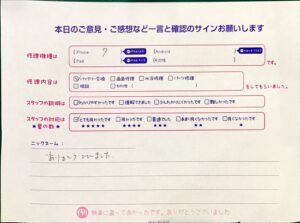 本日のご意見・ご感想など一言と確認のサインお願いします
修理機種は
iPhone 7
Android
iPad
その他
です。
修理内容は
バッテリー交換 画面修理 水没修理 パーツ修理
相談 その他
をしてもらいました。
スタッフの説明は
わかりやすかったです 理解できました 少しわかりにくかったです 難しかったです
スタッフの対応は
★星の数★
とても良かったです 良かったです 普通でした あまり良くなかったです 良くなかったです
★★★★★ ★★★★ ★★★ ★★ ★
ニックネーム:
ありがとうございました